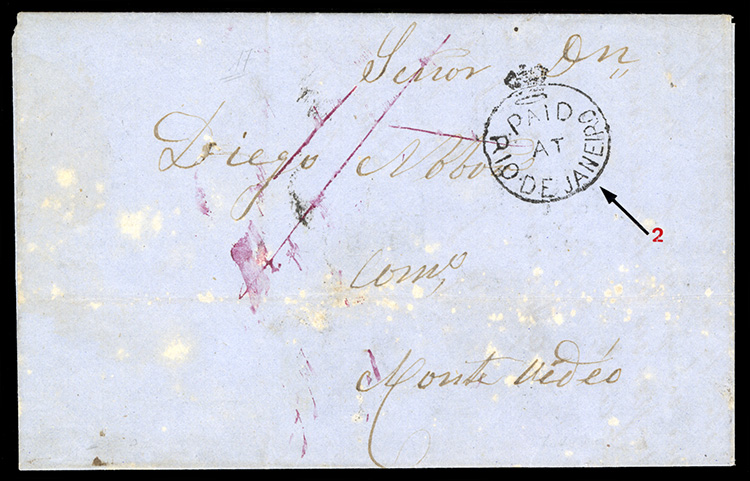 Señor Dn
Diego Abbo
Como
Monte Vidéo
PAID
AT
RIO DE JANEIRO
2